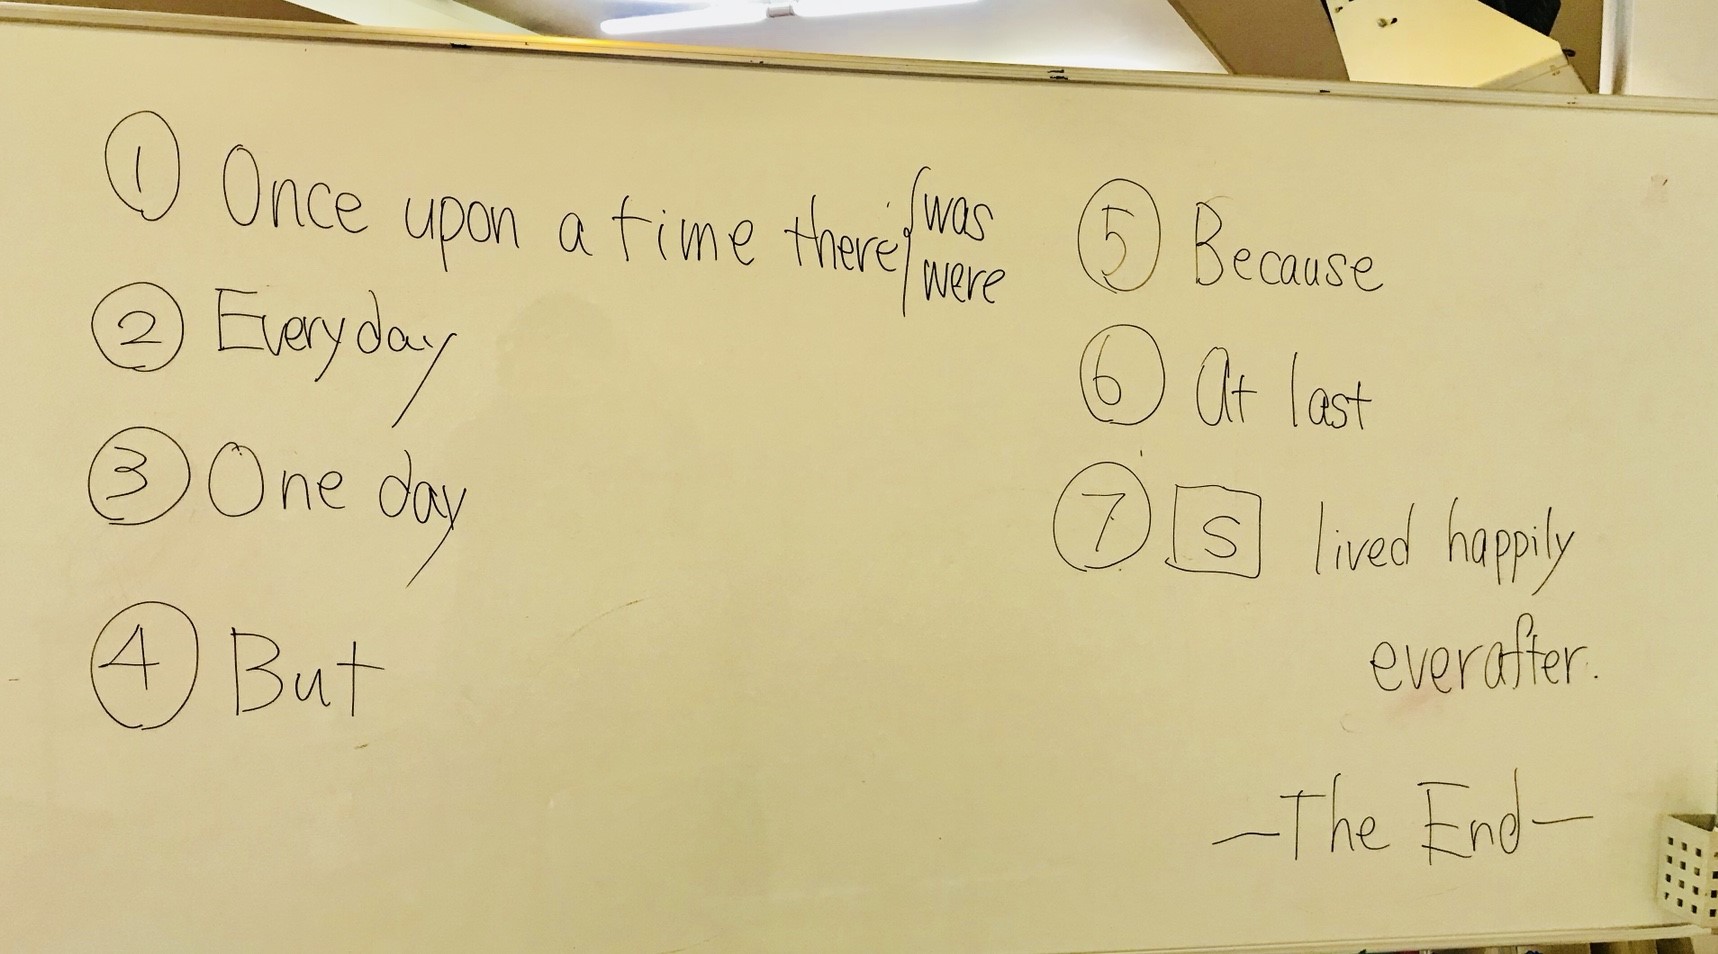 ① Once upon a time there { was
were
② Everyday
③ One day
④ But
⑤ Because
⑥ At last
⑦ S lived happily
ever after.
—The End—